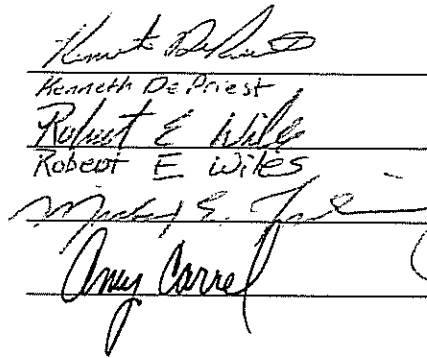 Kenneth DePriest
Kenneth DePriest
Robert E Wiles
Robert E Wiles
Michael E.
Amy Carrel